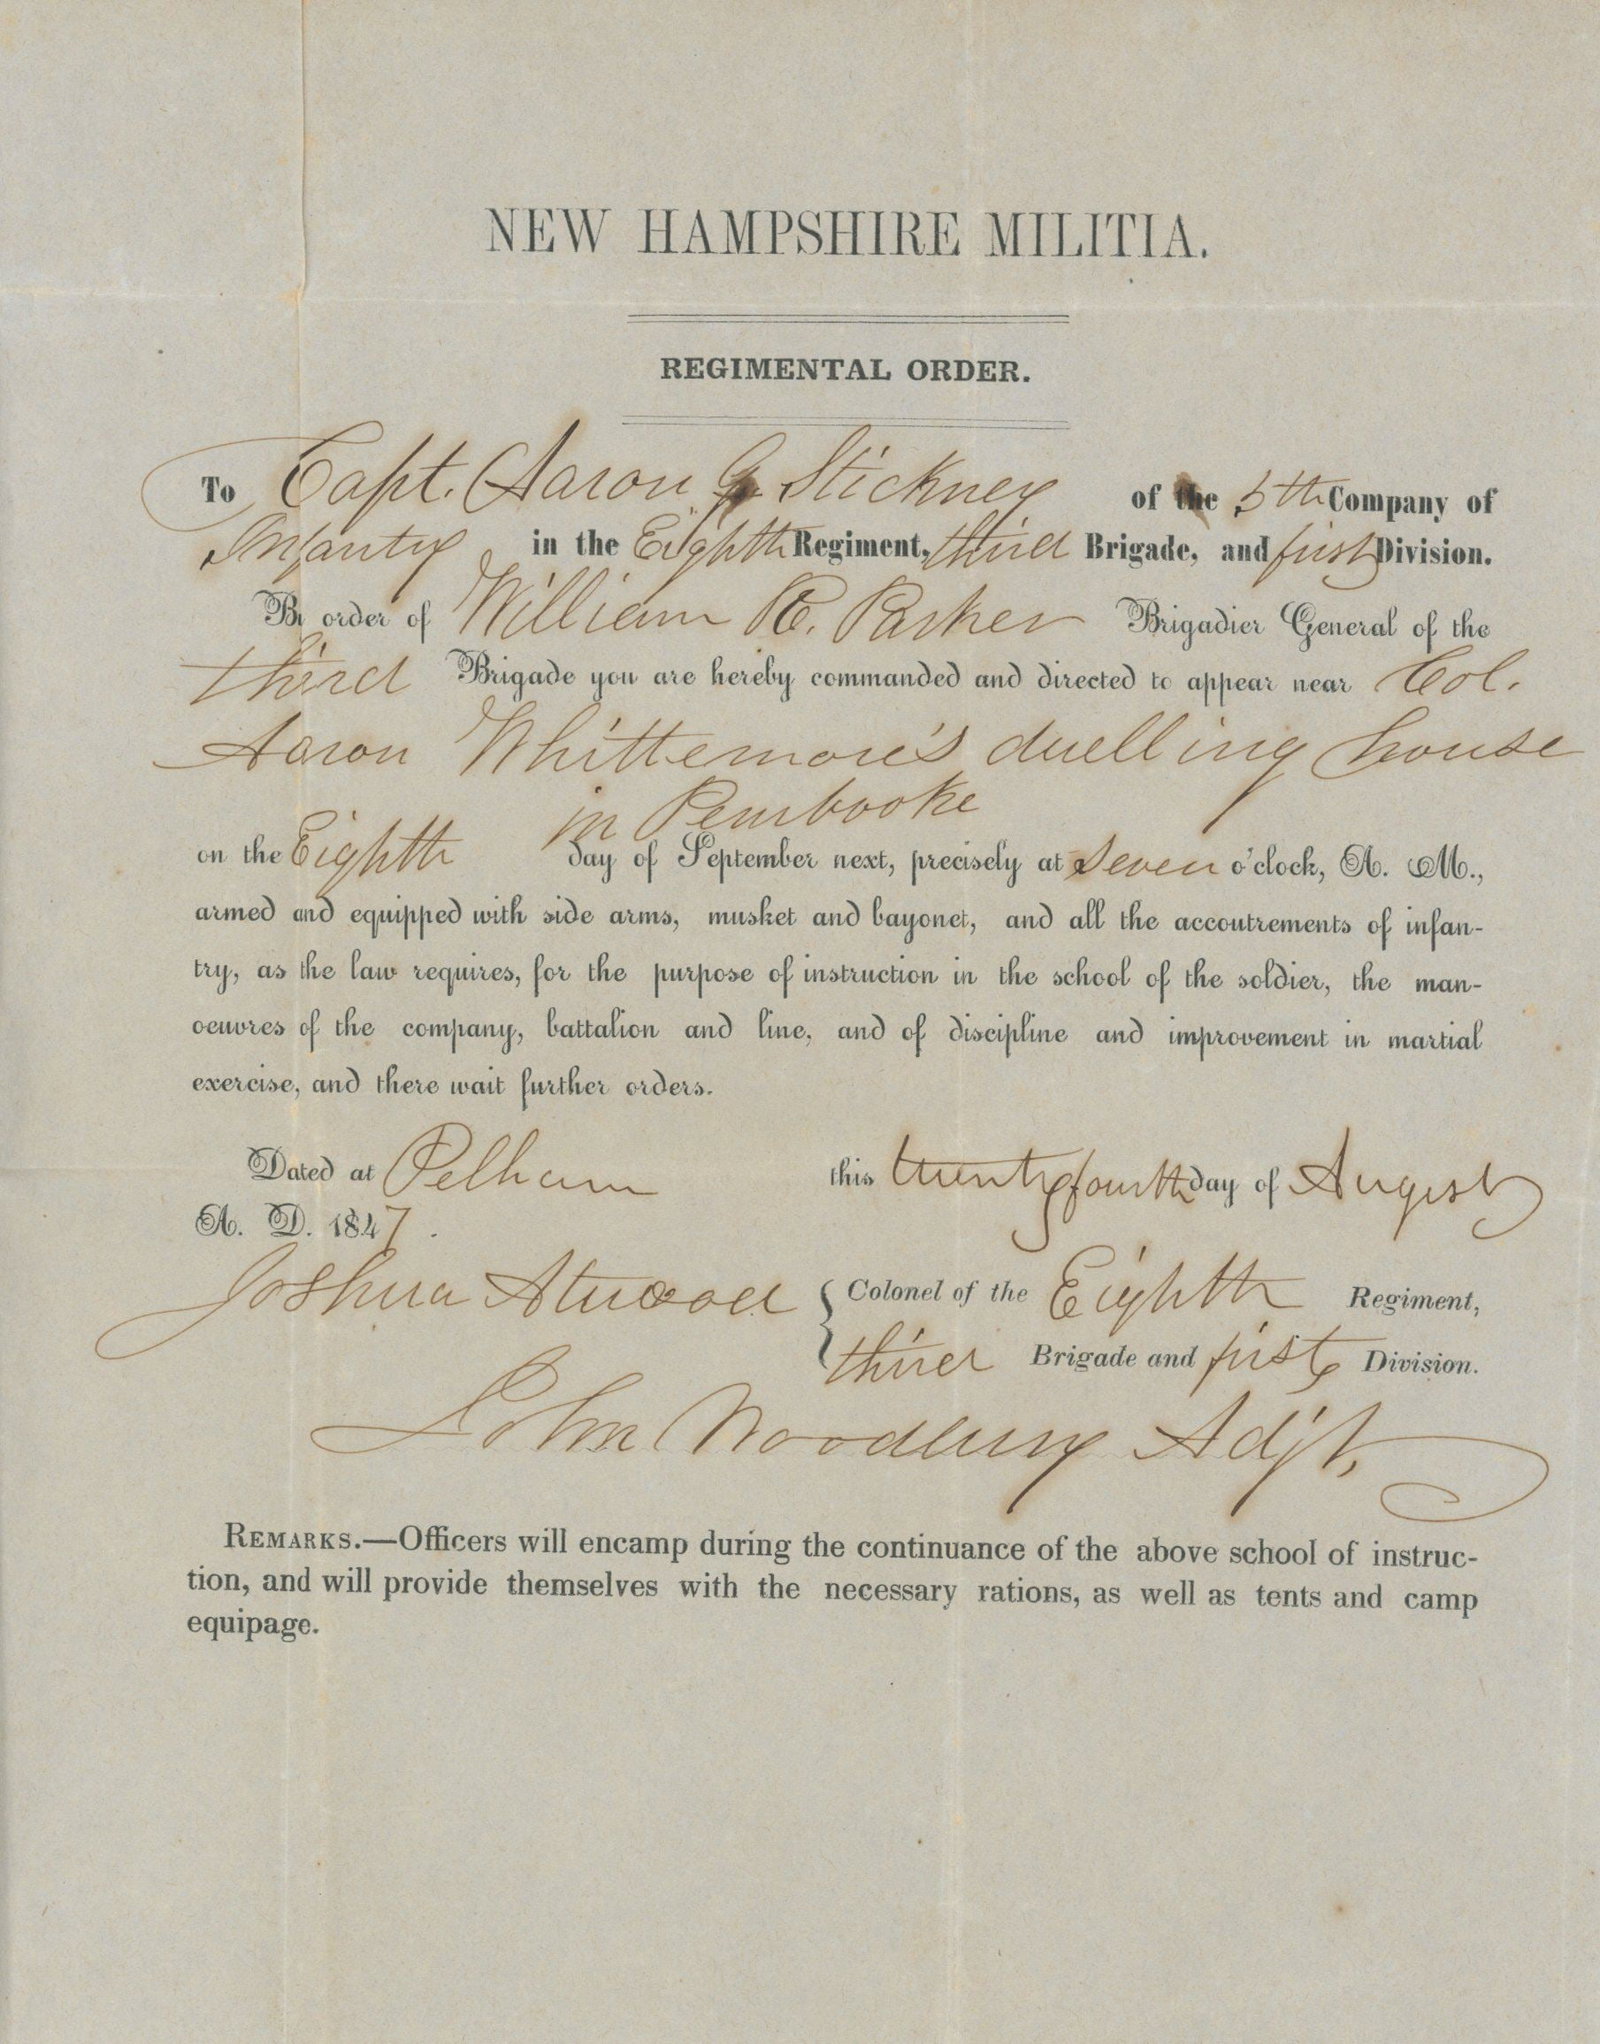 NEW HAMPSHIRE MILITIA.
REGIMENTAL ORDER.
To Capt. Aaron G. Stickney of the 5th Company of
Infantry in the Eighth Regiment, third Brigade, and first Division.
By order of William R. Parker Brigadier General of the
third Brigade you are hereby commanded and directed to appear near Col.
Aaron Whittemore's duelling house
in Pembrooke
on the Eighth day of September next, precisely at seven o'clock, A. M.,
armed and equipped with side arms, musket and bayonet, and all the accoutrements of infan-
try, as the law requires, for the purpose of instruction in the school of the soldier, the man-
oeuvres of the company, battalion and line, and of discipline and improvement in martial
exercise, and there wait further orders.
Dated at Pelham this twenty fourth day of August
A. D. 1847.
Joshua Atwood { Colonel of the Eighth Regiment,
third Brigade and first Division.
John Woodbury Adjt.
REMARKS.—Officers will encamp during the continuance of the above school of instruc-
tion, and will provide themselves with the necessary rations, as well as tents and camp
equipage.